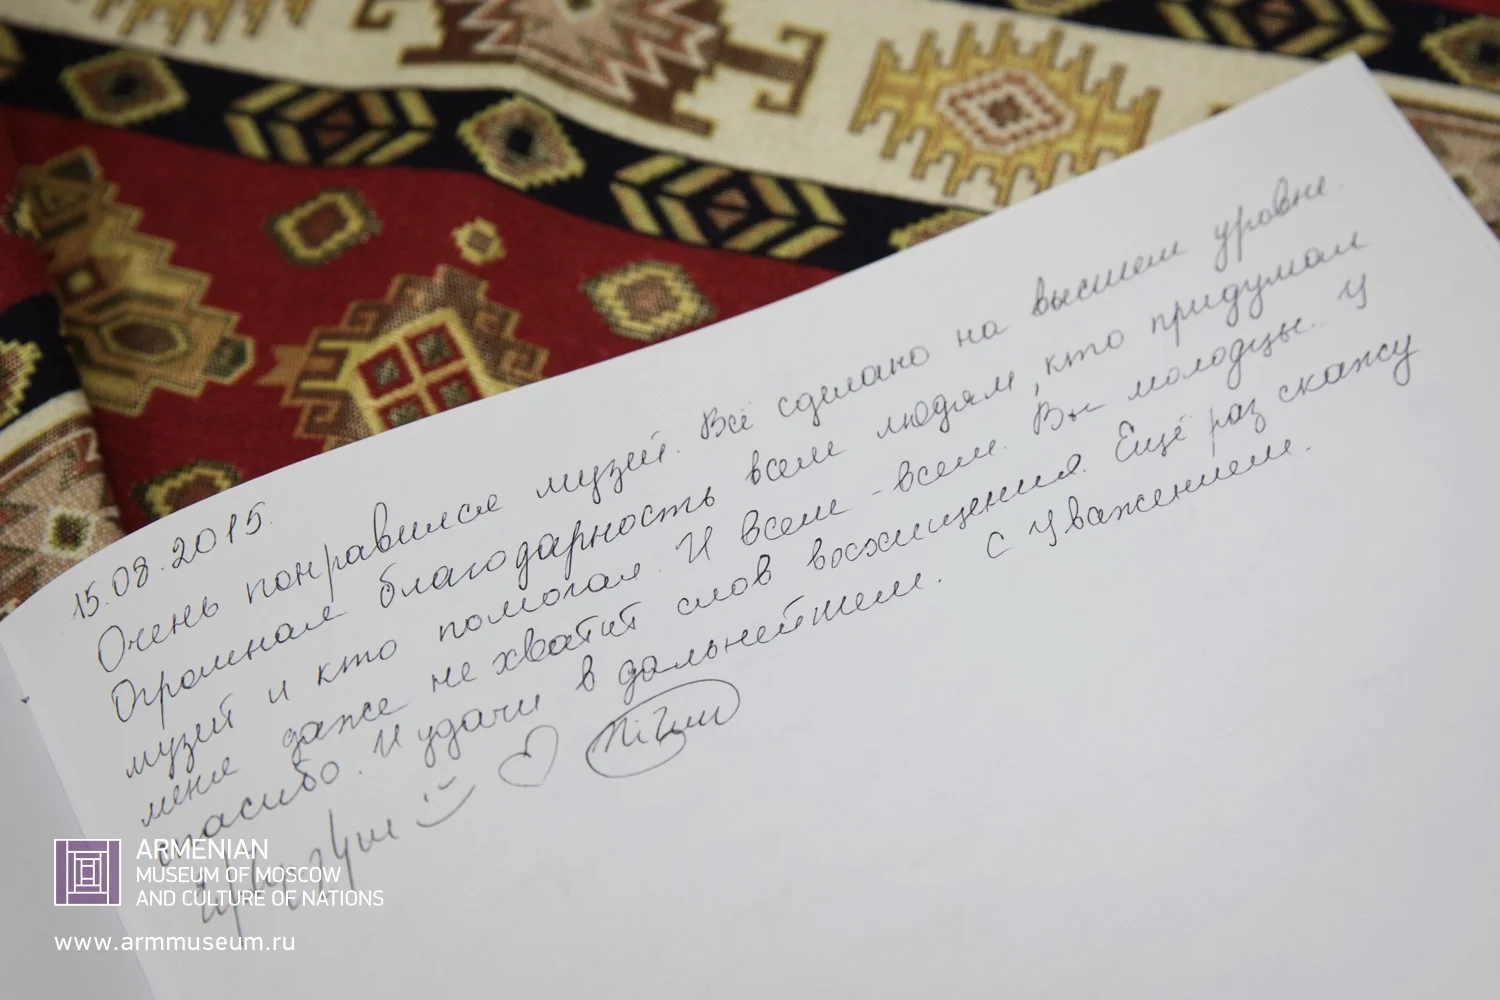 15.08.2015.
Очень понравился музей. Всё сделано на высшем уровне.
Огромная благодарность всем людям, кто придумал
музей и кто помогал. И всем-всем. Вы молодцы. У
меня даже не хватит слов восхищения. Ещё раз скажу
спасибо. И удачи в дальнейшем. С уважением.
ARMENIAN
MUSEUM OF MOSCOW
AND CULTURE OF NATIONS
www.armmuseum.ru